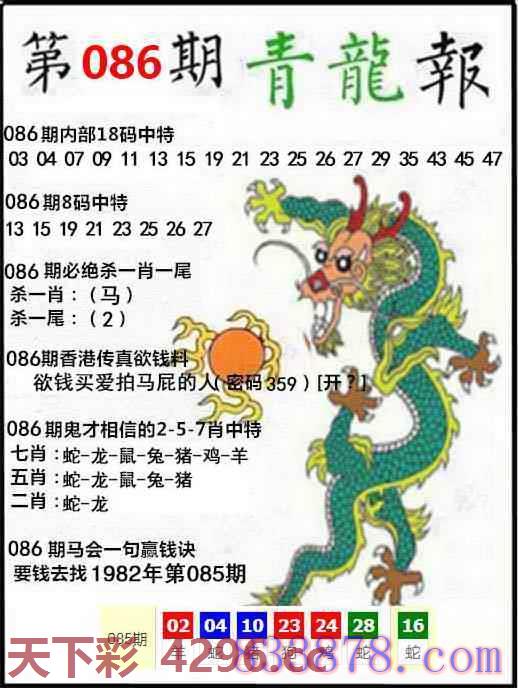 第086期 青龍報
086期内部18码中特
03 04 07 09 11 13 15 19 21 23 25 26 27 29 35 43 45 47
086期8码中特
13 15 19 21 23 25 26 27
086期必绝杀一肖一尾
杀一肖：(马)
杀一尾：(2)
086期香港传真欲钱料
欲钱买爱拍马屁的人(密码359)[开？]
086期鬼才相信的2-5-7肖中特
七肖：蛇-龙-鼠-兔-猪-鸡-羊
五肖：蛇-龙-鼠-兔-猪
二肖：蛇-龙
086期马会一句赢钱诀
要钱去找1982年第085期
085期 02 04 10 23 24 28 16
羊 蛇 狗 鸡 蛇 蛇
天下彩 4296.cc 838878.com